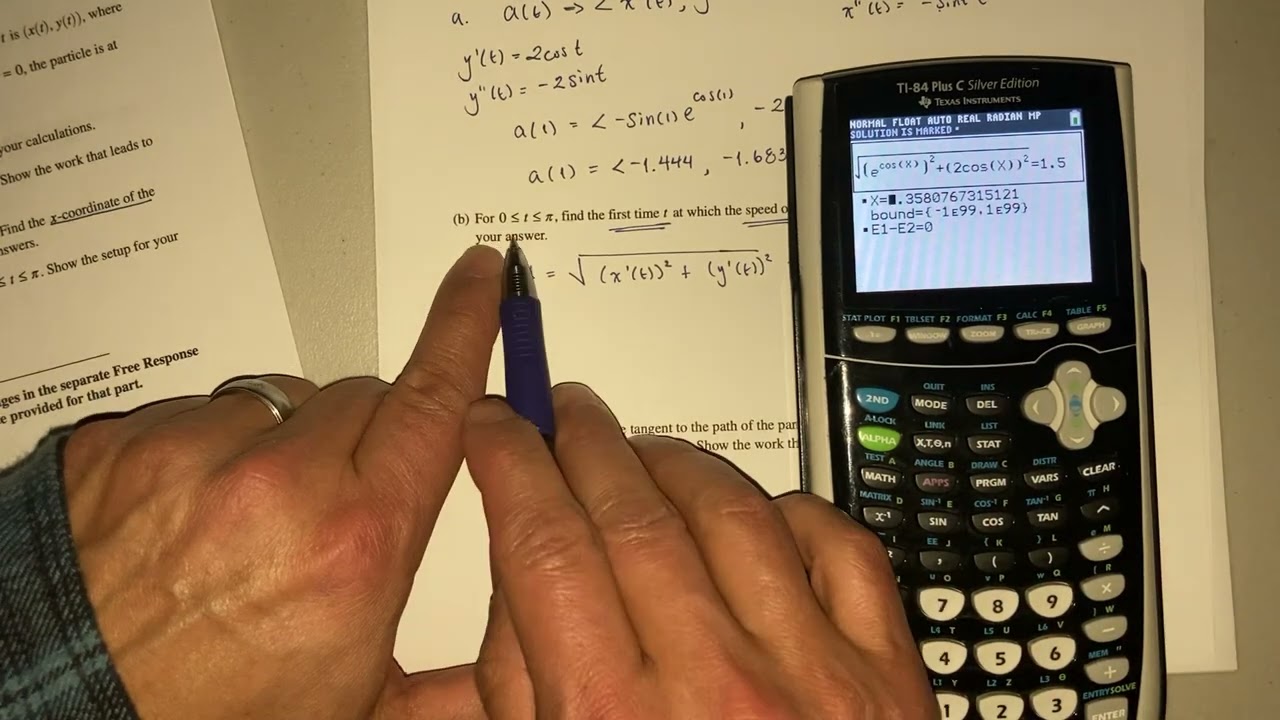 t is (x(t), y(t)), where
= 0, the particle is at
your calculations.
Show the work that leads to
Find the x-coordinate of the
swers.
≤ t ≤ π. Show the setup for your
ges in the separate Free Response
e provided for that part.
a. a(t) → <
x"(t) = -sint
y'(t) = 2cost
y"(t) = -2sint
a(1) = <-sin(1)e^cos(1), -2
a(1) = <-1.444, -1.683
(b) For 0 ≤ t ≤ π, find the first time t at which the speed o
your answer.
= √(x'(t))² + (y'(t))²
e tangent to the path of the par
Show the work th
TI-84 Plus C Silver Edition
TEXAS INSTRUMENTS
NORMAL FLOAT AUTO REAL RADIAN MP
SOLUTION IS MARKED
√(e^cos(X))²+(2cos(X))²=1.5
X=.3580767315121
bound={-1E99,1E99}
E1-E2=0
STAT PLOT F1 TBLSET F2 FORMAT F3 CALC F4 TABLE F5
WINDOW ZOOM TRACE GRAPH
QUIT INS
2ND MODE DEL
A-LOCK LINK LIST
ALPHA X,T,θ,n STAT
TEST A ANGLE B DRAW C DISTR
MATH APPS PRGM VARS CLEAR
MATRIX D SIN⁻¹ E COS⁻¹ F TAN⁻¹ G π H
x⁻¹ SIN COS TAN ^
EE J { K } L e M
, ( ) ÷
u O v P w Q [ R
7 8 9 ×
L4 T L5 U L6 V ] W
4 5 6 −
L1 Y L2 Z L3 θ MEM "
1 2 3 +
ENTRY SOLVE
ENTER